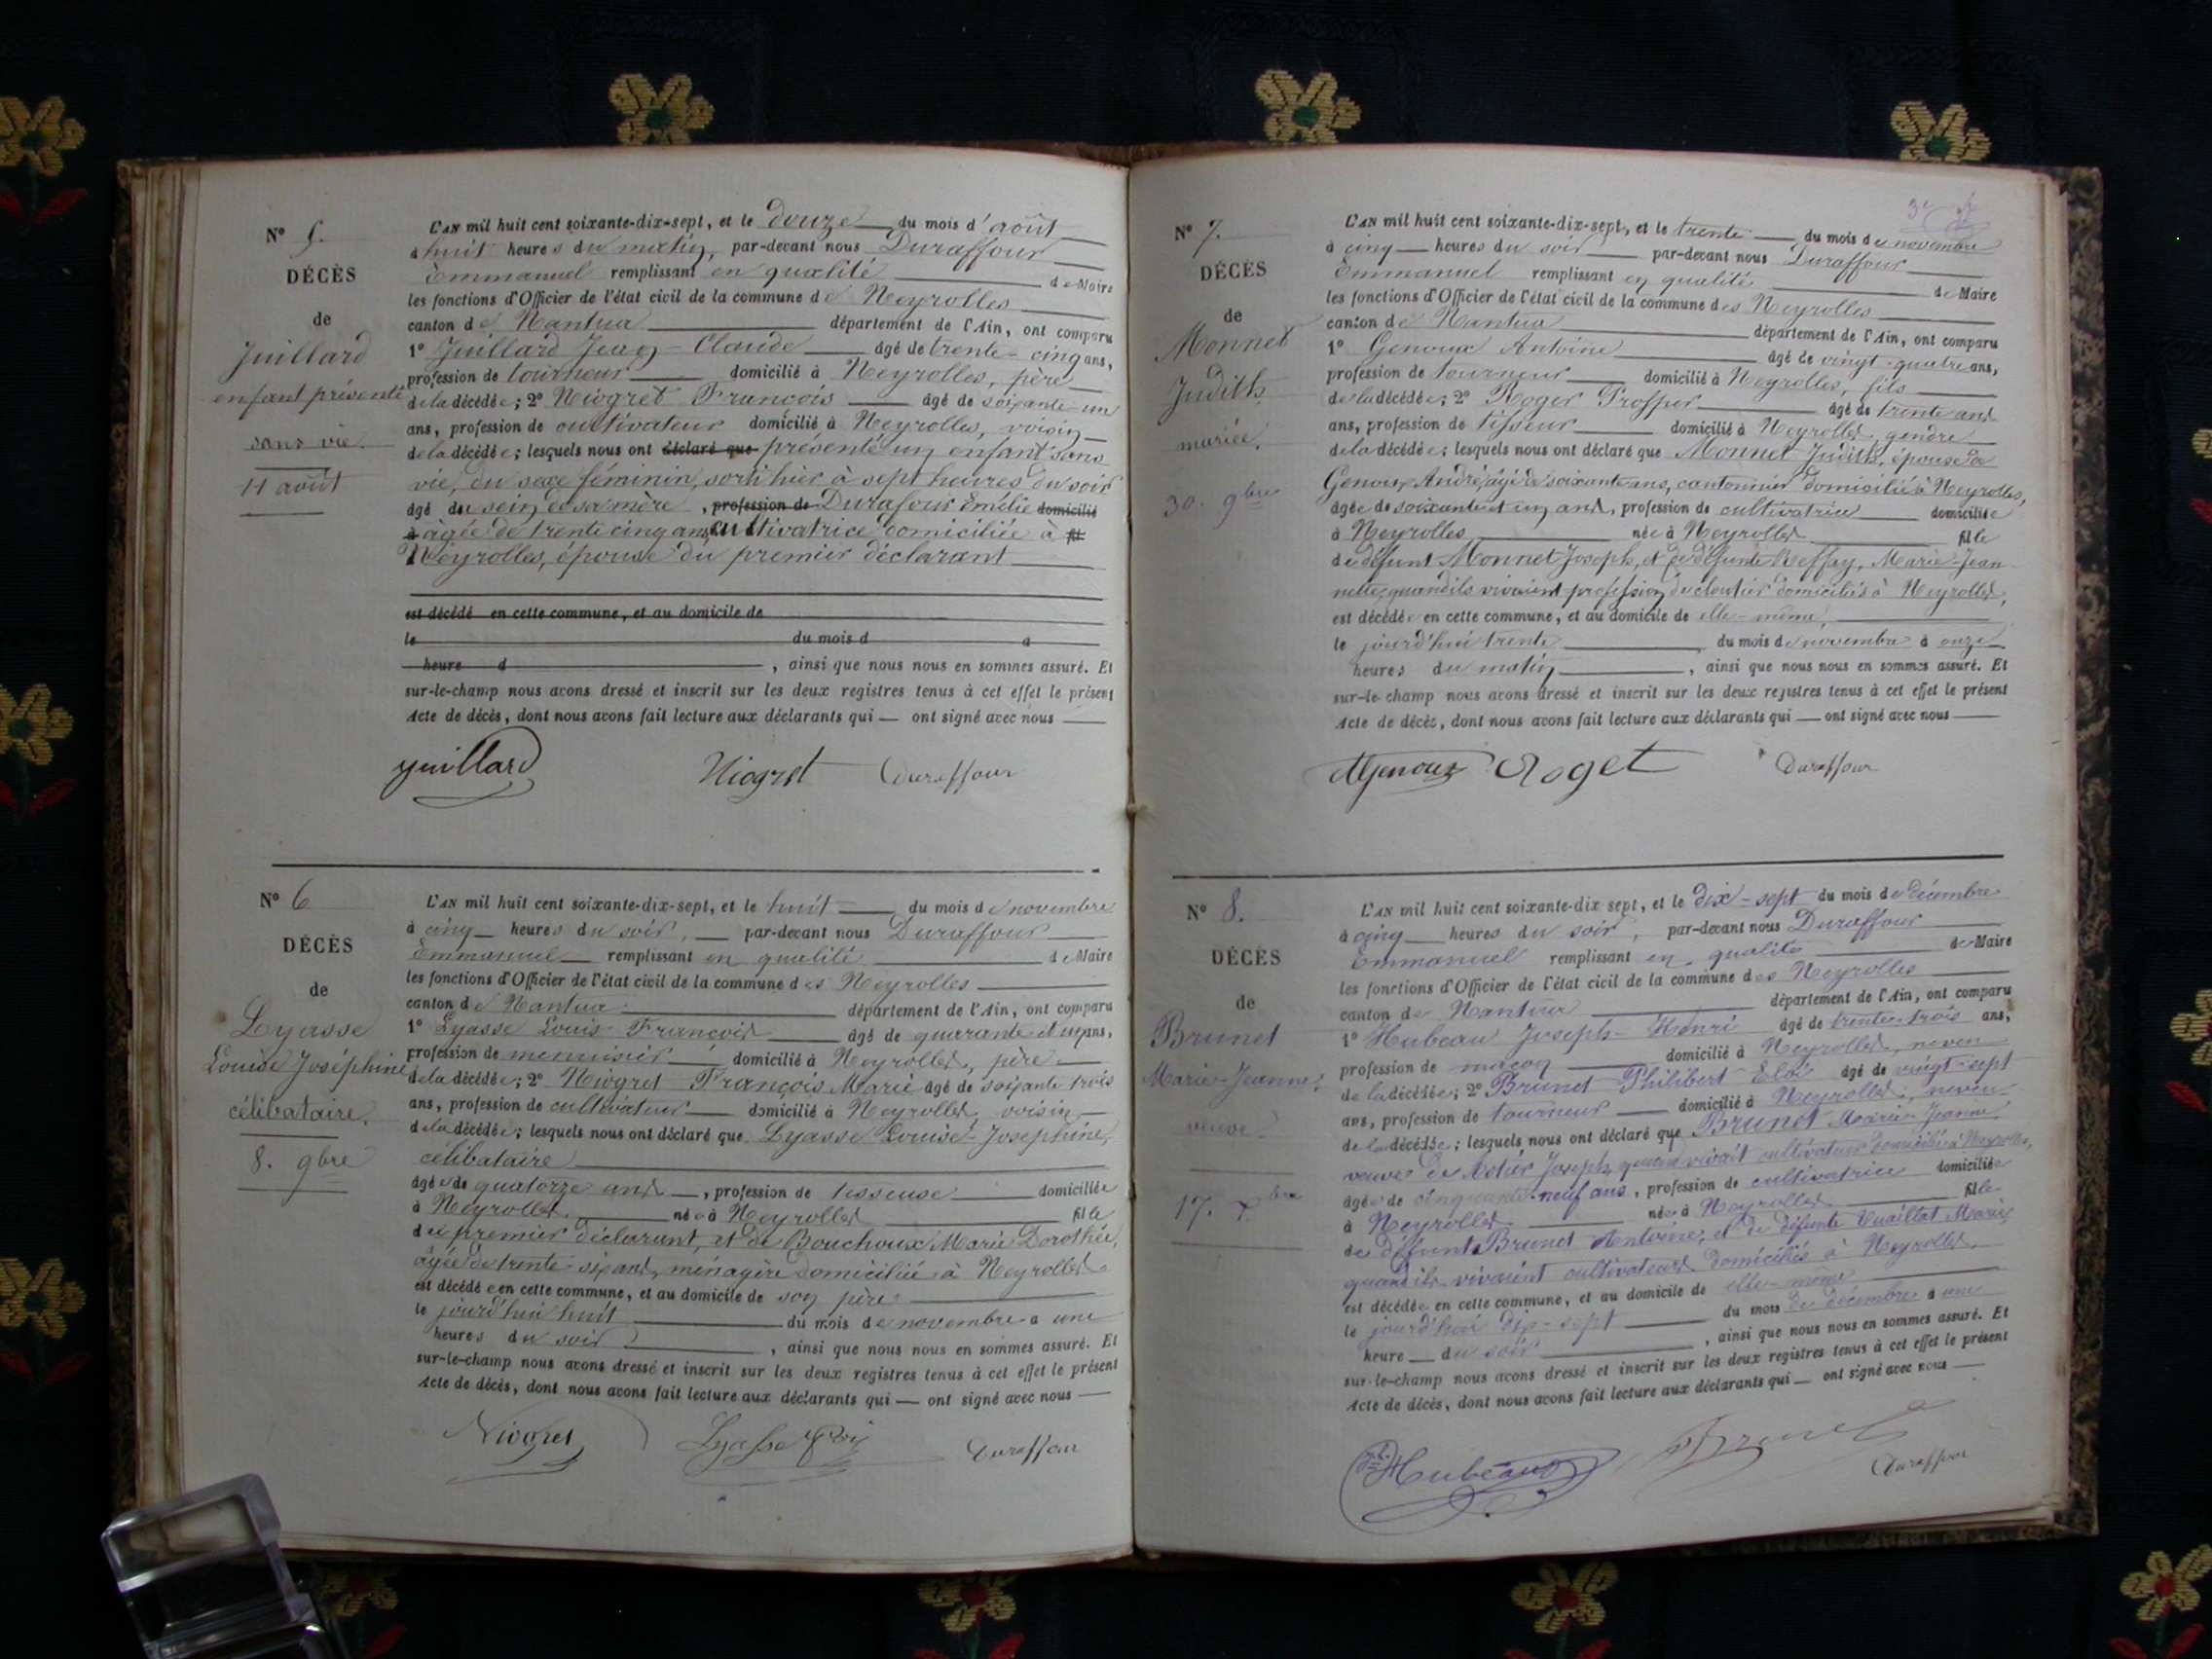 N° 5.
DÉCÈS
de
Juillard
enfant présenté
sans vie.
11 août
L'AN mil huit cent soixante-dix-sept, et le douze du mois d'août
à huit heures du matin, par-devant nous Duraffour
Emmanuel remplissant en qualité de Maire
les fonctions d'Officier de l'état civil de la commune des Neyrolles
canton de Nantua département de l'Ain, ont comparu
1° Juillard Jean-Claude âgé de trente-cinq ans,
profession de tourneur domicilié à Neyrolles, père
de la décédée; 2° Niogret François âgé de soixante-un
ans, profession de cultivateur domicilié à Neyrolles, voisin
de la décédée; lesquels nous ont déclaré que présenté un enfant sans
vie, du sexe féminin, sorti hier à sept heures du soir
âgé du sein de sa mère, profession de Durafour Emélie domicilié
à âgée de trente cinq ans, cultivatrice domiciliée à fil
Neyrolles, épouse du premier déclarant
est décédé en cette commune, et au domicile de
le du mois d à
heure d , ainsi que nous nous en sommes assuré. Et
sur-le-champ nous avons dressé et inscrit sur les deux registres tenus à cet effet le présent
Acte de décès, dont nous avons fait lecture aux déclarants qui — ont signé avec nous
Juillard Niogret Duraffour
N° 6
DÉCÈS
de
Lyasse
Louise Joséphine
célibataire.
8. 9bre
L'AN mil huit cent soixante-dix-sept, et le huit du mois de novembre
à cinq heures du soir, par-devant nous Duraffour
Emmanuel remplissant en qualité de Maire
les fonctions d'Officier de l'état civil de la commune des Neyrolles
canton de Nantua département de l'Ain, ont comparu
1° Lyasse Louis François âgé de quarante et un ans,
profession de menuisier domicilié à Neyrolles, père
de la décédée; 2° Niogret François Marie âgé de soixante trois
ans, profession de cultivateur domicilié à Neyrolles, voisin
de la décédée; lesquels nous ont déclaré que Lyasse Louise-Joséphine,
célibataire
âgée de quatorze ans, profession de tisseuse domiciliée
à Neyrolles née à Neyrolles fille
du premier déclarant, et de Bouchoux Marie Dorothée,
âgée de trente-six ans, ménagère domiciliée à Neyrolles
est décédée en cette commune, et au domicile de son père
le jourd'hui huit du mois de novembre à une
heures du soir, ainsi que nous nous en sommes assuré. Et
sur-le-champ nous avons dressé et inscrit sur les deux registres tenus à cet effet le présent
Acte de décès, dont nous avons fait lecture aux déclarants qui — ont signé avec nous
Niogret Lyasse Duraffour
N° 7.
DÉCÈS
de
Monnet
Judith
mariée.
30. 9bre
L'AN mil huit cent soixante-dix-sept, et le trente du mois de novembre
à cinq heures du soir par-devant nous Duraffour
Emmanuel remplissant en qualité de Maire
les fonctions d'Officier de l'état civil de la commune des Neyrolles
canton de Nantua département de l'Ain, ont comparu
1° Genoux Antoine âgé de vingt-quatre ans,
profession de tourneur domicilié à Neyrolles, fils
de la décédée; 2° Roger Prosper âgé de trente ans
ans, profession de tisseur domicilié à Neyrolles, gendre
de la décédée; lesquels nous ont déclaré que Monnet Judith, épouse de
Genoux André, âgé de soixante ans, cantonnier domicilié à Neyrolles,
âgée de soixante et un ans, profession de cultivatrice domiciliée
à Neyrolles née à Neyrolles fille
de défunt Monnet Joseph, et de défunte Marie-Jean
nette, quand ils vivaient profession de cloutier domiciliés à Neyrolles,
est décédée en cette commune, et au domicile de elle-même,
le jourd'hui trente du mois de novembre à onze
heures du matin, ainsi que nous nous en sommes assuré. Et
sur-le-champ nous avons dressé et inscrit sur les deux registres tenus à cet effet le présent
Acte de décès, dont nous avons fait lecture aux déclarants qui — ont signé avec nous
AGenoux Roget Duraffour
N° 8.
DÉCÈS
de
Brunet
Marie-Jeanne,
veuve
17. Xbre
L'AN mil huit cent soixante-dix sept, et le dix-sept du mois de décembre
à cinq heures du soir, par-devant nous Duraffour
Emmanuel remplissant en qualité de Maire
les fonctions d'Officier de l'état civil de la commune des Neyrolles
canton de Nantua département de l'Ain, ont comparu
1° Hubeau Joseph-Henri âgé de trente-trois ans,
profession de maçon domicilié à Neyrolles, neveu
de la décédée; 2° Brunet Philibert Eloi âgé de vingt-sept
ans, profession de tourneur domicilié à Neyrolles, neveu
de la décédée; lesquels nous ont déclaré que Brunet Marie-Jeanne
veuve de Joseph, quand vivait cultivateur domicilié à Neyrolles,
âgée de cinquante-neuf ans, profession de cultivatrice domiciliée
à Neyrolles née à Neyrolles fille
de défunts Brunet Antoine, et de défunte Marie,
quand ils vivaient cultivateurs domiciliés à Neyrolles,
est décédée en cette commune, et au domicile de elle-même
le jourd'hui dix-sept du mois de décembre à une
heure du soir, ainsi que nous nous en sommes assuré. Et
sur-le-champ nous avons dressé et inscrit sur les deux registres tenus à cet effet le présent
Acte de décès, dont nous avons fait lecture aux déclarants qui — ont signé avec nous
Hubeau Brunet Duraffour